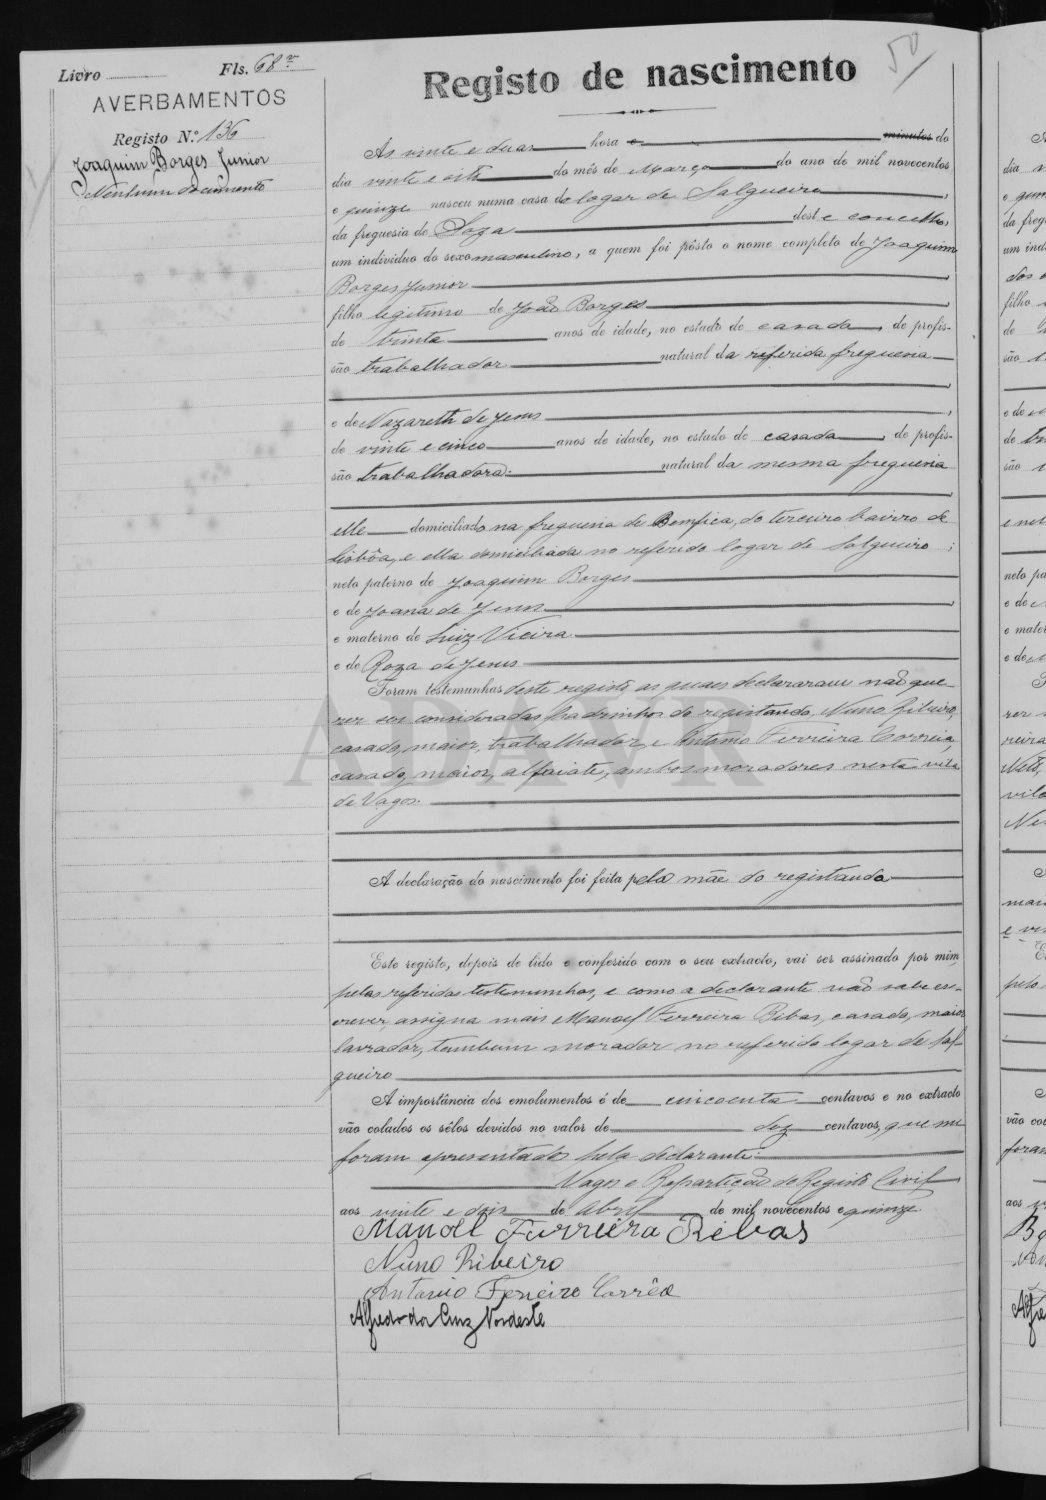 Livro Fls. 68v
50
AVERBAMENTOS
Registo N.º 136
Joaquim Borges Junior
Nenhum documento
Registo de nascimento
As vinte e duas hora e minutos do
dia vinte e oito do mês de Março do ano de mil novecentos
e quinze nasceu numa casa do logar de Salgueiro,
da freguesia de Soza deste concelho,
um indivíduo do sexo masculino, a quem foi pôsto o nome completo de Joaquim
Borges Junior,
filho legitimo de João Borges,
de trinta anos de idade, no estado de casado, de profis-
são trabalhador natural da referida freguesia
,
e de Nazareth de Jesus,
de vinte e cinco anos de idade, no estado de casada, de profis-
são trabalhadora natural da mesma freguesia
,
elle domiciliado na freguesia de Bemfica, do terceiro bairro de
Lisbôa, e ella domiciliada no referido logar de Salgueiro;
neto paterno de Joaquim Borges
e de Joana de Jesus,
e materno de Luiz Vieira
e de Roza de Jesus
Foram testemunhas deste registo, as quaes declararam não que-
rer ser consideradas padrinhos do registando, Nuno Ribeiro,
casado, maior, trabalhador, e Antonio Ferreira Correia,
casado, maior, alfaiate, ambos moradores nesta vila
de Vagos.
A declaração do nascimento foi feita pela mãe do registando
Este registo, depois de lido e conferido com o seu extracto, vai ser assinado por mim,
pelas referidas testemunhas, e como a declarante não sabe es-
crever, assigna mais Manoel Ferreira Ribas, casado, maior
lavrador, tambem morador no referido logar de Sal-
gueiro
A importância dos emolumentos é de cincoenta centavos e no extracto
vão colados os sêlos devidos no valor de dez centavos, que me
foram apresentados pela declarante.
Vagos e Repartição do Registo Civil
aos vinte e dois de Abril de mil novecentos e quinze.
Manoel Ferreira Ribas
Nuno Ribeiro
Antonio Ferreira Corrêa
Alfredo da Cruz Nordeste
ADAVR